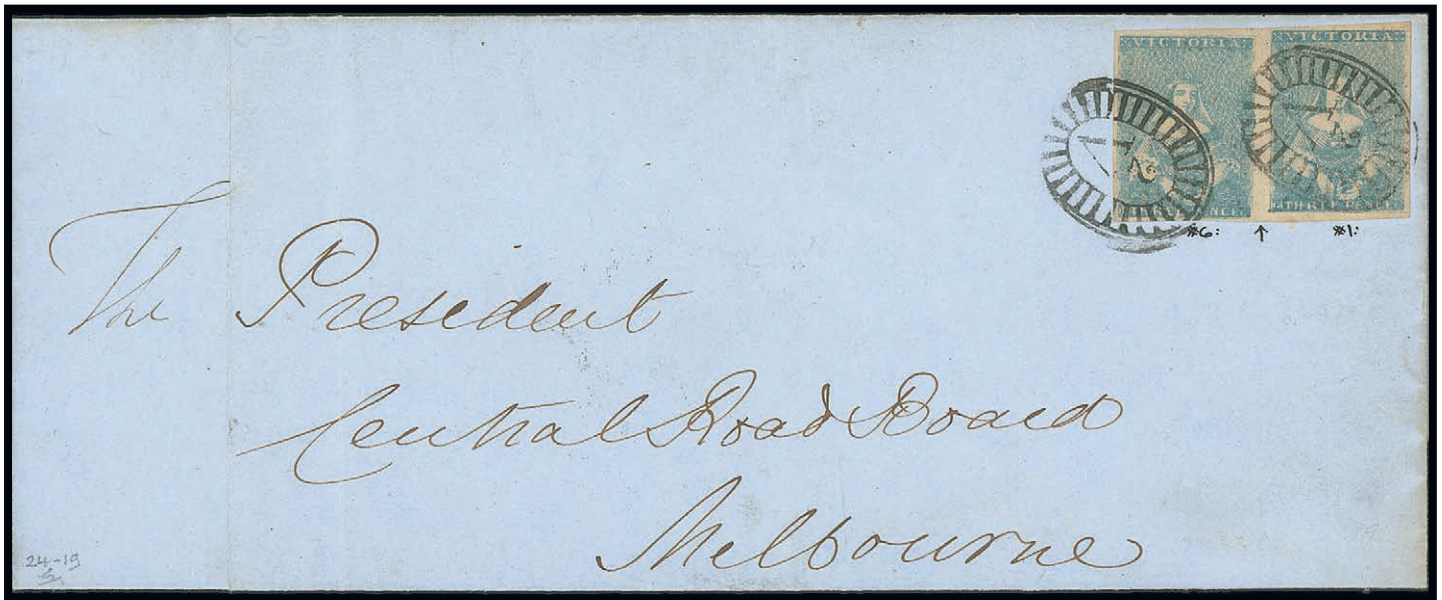 VICTORIA VICTORIA
PENCE THREE PENCE
#6: ↑ #1:
The President
Central Road Board
Melbourne
24-19